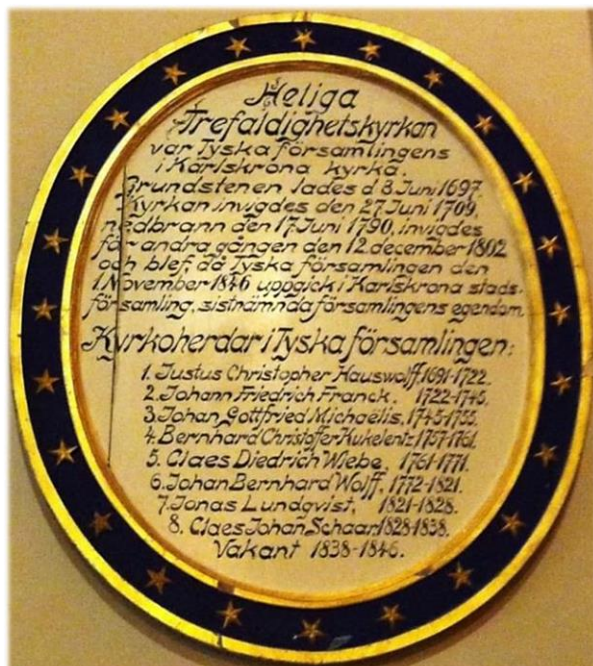 Heliga
Trefaldighetskyrkan
var Tyska församlingens
i Karlskrona kyrka.
Grundstenen lades d 8 Juni 1697.
Kyrkan invigdes den 27 Juni 1709,
nedbrann den 17 Juni 1790, invigdes
för andra gången den 12 december 1802
och blef, då Tyska församlingen den
1 November 1846 uppgick i Karlskrona stads-
församling, sistnämnda församlingens egendom
Kyrkoherdar i Tyska församlingen:
1. Justus Christopher Hauswolff, 1691-1722.
2. Johann Friedrich Franck. 1722-1745.
3. Johan Gottfried Michaëlis, 1745-1755.
4. Bernhard Christoffer Kukelentz 1757-1761.
5. Claes Diedrich Wiebe, 1761-1771.
6. Johan Bernhard Wolff, 1772-1821.
7. Jonas Lundqvist, 1821-1828.
8. Claes Johan Schaar 1828-1838.
Vakant 1838-1846.